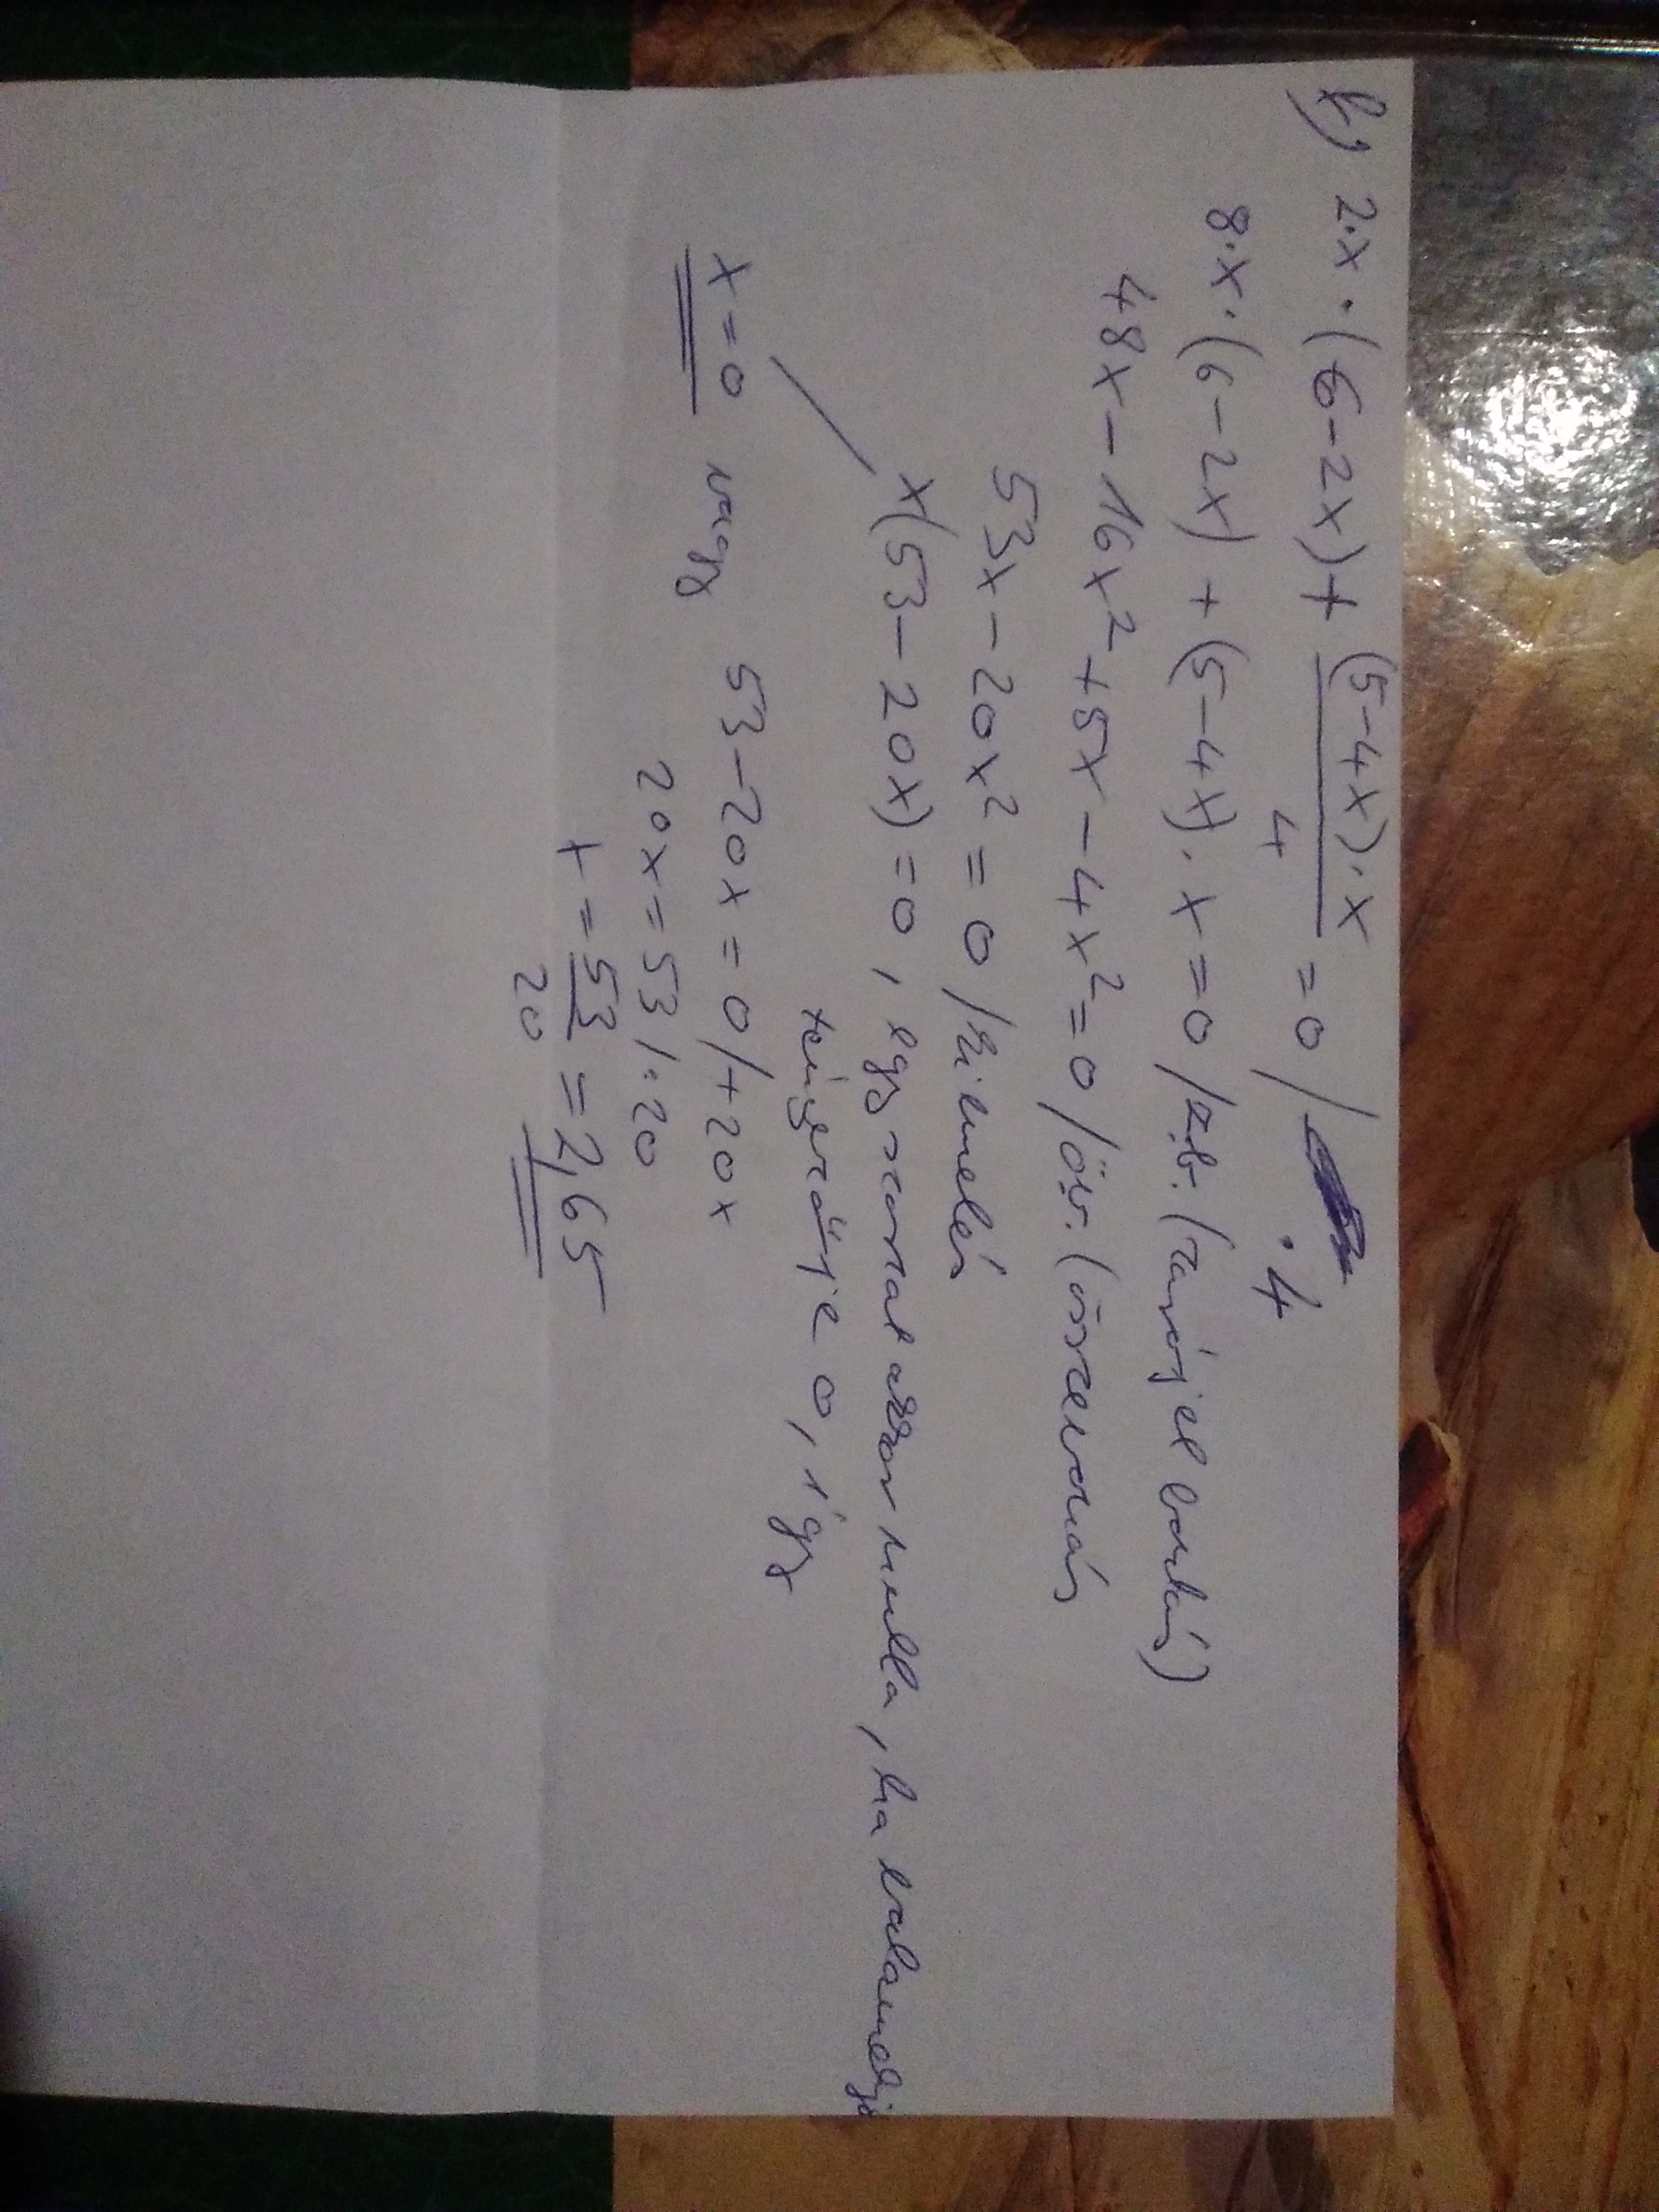 f) 2·x·(6-2x)+ (5-4x)·x/4 = 0 / ·4
8·x·(6-2x)+(5-4x)·x=0 /z.b. (zárójelbontás)
48x-16x²+5x-4x²=0 /ö.v. (összevonás
53x-20x²=0 /kiemelés
x(53-20x)=0, egy szorzat akkor nulla, ha valamelyik
tényezője 0, így
x=0 vagy 53-20x=0 /+20x
20x=53 /:20
x = 53/20 = 2,65